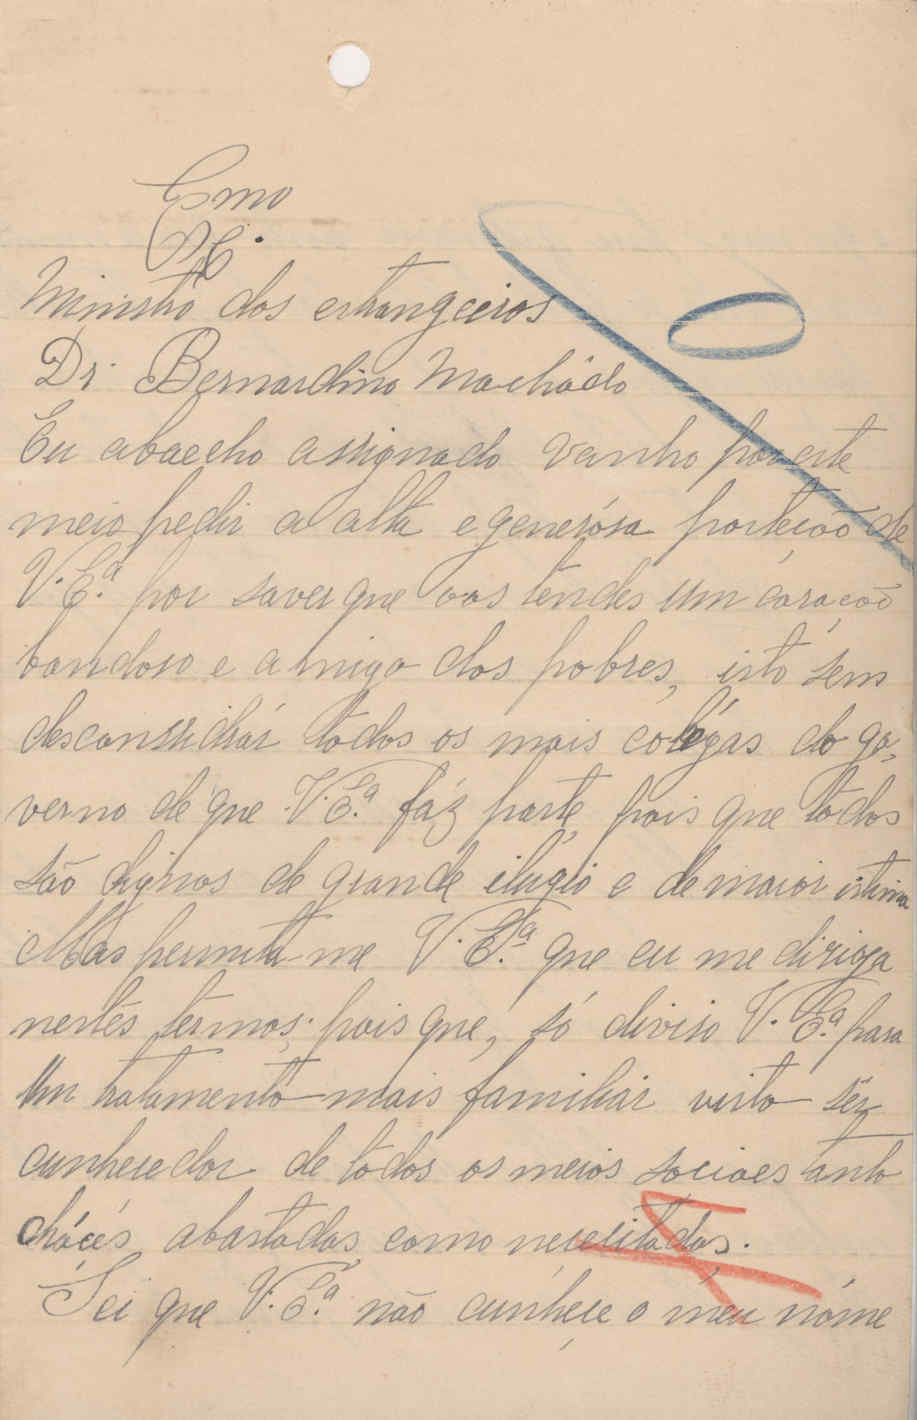 Exmo
Sr.
Ministro dos estrangeiros
Dr. Bernardino Machádo
Eu abaecho assignado vanho por este
meio pedir a alta e generósa porteçoõ de
V. Ex.ª por saver que vos tendes um coraçoõ
bondoso e amigo dos pobres, isto sem
desconsidrár todos os mais colégas do go,
verno de que V. Ex.ª fáz parte, pois que todos
são dignos de grande ilugio e de maior estima
Mas permita me V. Ex.ª que eu me dirija
nestes termos; pois que, só diviso V. Ex.ª para
um tratamento mais familiár visto sêr
cunhecedor de todos os meios sociaes tanto
cláces abastadas como necesitadas.
Sei que V. Ex.ª não cunheçe o meu nóme